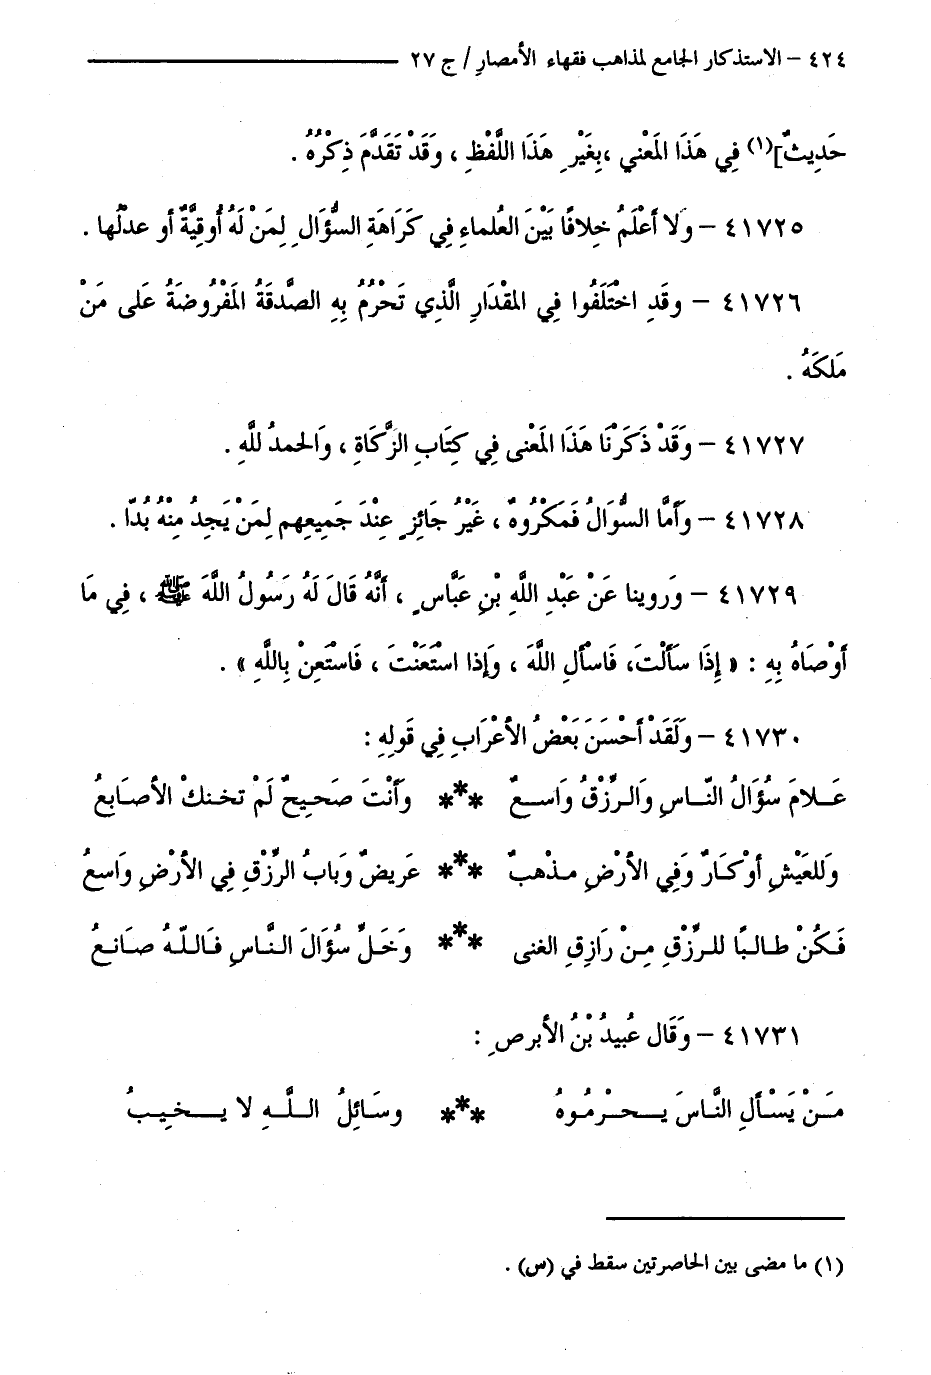 ٤٢٤ – الاستذكار الجامع لمذاهب فقهاء الأمصار / ج ٢٧
حَدِيثٌ](١) فِي هَذَا المَعْنى ،بِغَيْرِ هَذَا اللَّفْظِ ، وَقَدْ تَقَدَّمَ ذِكْرُهُ .
٤١٧٢٥ – وَلا أَعْلَمُ خِلافًا بَيْنَ العُلماءِ فِي كَرَاهَةِ السُّؤَالِ لِمَنْ لَهُ أُوقِيَّةٌ أو عدلُها .
٤١٧٢٦ – وقَدِ اخْتَلَفُوا فِي المقْدَارِ الَّذِي تَحْرُمُ بِهِ الصَّدقَةُ المَفْرُوضَةُ عَلى مَنْ
مَلَكَهُ .
٤١٧٢٧ – وَقَدْ ذَكَرْنَا هَذَا المَعْنى فِي كِتَابِ الزَّكَاةِ ، وَالحمدُ للَّهِ .
٤١٧٢٨ – وَأَمَّا السُّؤالُ فَمَكْرُوهٌ ، غَيْرُ جَائِزٍ عِنْدَ جَمِيعِهم لِمَنْ يَجِدُ مِنْهُ بُدّا .
٤١٧٢٩ – وَروينا عَنْ عَبْدِ اللَّهِ بْنِ عَبَّاسٍ ، أَنَّهُ قَالَ لَهُ رَسُولُ اللَّهَ ﷺ ، فِي مَا
أَوْصَاهُ بِهِ : « إِذَا سَأَلْتَ، فَاسأَلِ اللَّهَ ، وَإذا اسْتَعَنْتَ ، فَاسْتَعِنْ بِاللَّهِ » .
٤١٧٣٠ – وَلَقَدْ أَحْسَنَ بَعْضُ الأَعْرَابِ فِي قَولِهِ :
عَـلامَ سُؤَالُ النَّـاسِ وَالـرِّزْقُ وَاسـعٌ *** وَأَنْتَ صَحِيحٌ لَمْ تخنكْ الأصَابعُ
وَللعَيْشِ أَوْكَـارٌ وَفِي الأَرْضِ مـذْهبٌ *** عَريضٌ وَبَابُ الرِّزْقِ فِي الأَرْضِ وَاسعُ
فَـكُنْ طَـالبًا للـرِّزْقِ مِـنْ رَازِقِ الغنى *** وَخَلِّ سُؤَالَ النَّـاسِ فَـاللَّـهُ صَانعُ
٤١٧٣١ – وَقَال عُبيدُ بْنُ الأبرصِ :
مَـنْ يَسْـأَلِ النَّـاسَ يَـحْـرِمُـوهُ *** وسَـائِلُ اللَّـهِ لا يـخـيـبُ
(١) ما مضى بين الحاصرتين سقط في (س) .